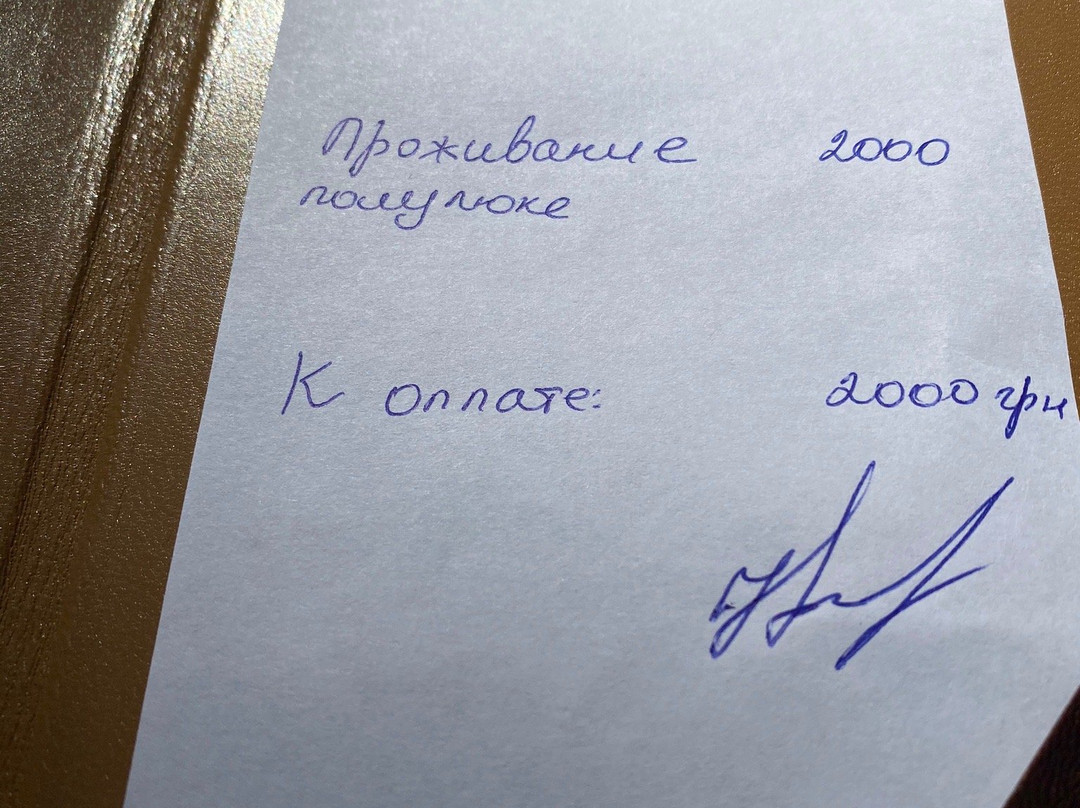 Проживание 2000
полулюке
К оплате: 2000 грн